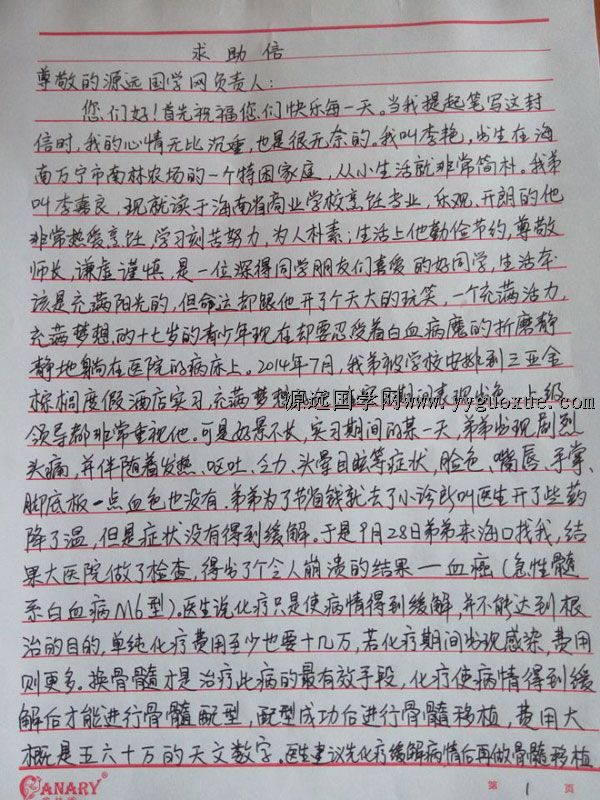 求助信
尊敬的源远国学网负责人:
您们好!首先祝福您们快乐每一天。当我提起笔写这封
信时,我的心情无比沉重,也是很无奈的。我叫李艳,出生在海
南万宁市南林农场的一个特困家庭,从小生活就非常简朴。我弟
叫李嘉良,现就读于海南省商业学校烹饪专业,乐观、开朗的他
非常热爱烹饪,学习刻苦努力,为人朴素;生活上他勤俭节约,尊敬
师长,谦虚谨慎,是一位深得同学朋友们喜爱的好同学,生活本
该是充满阳光的,但命运却跟他开了个天大的玩笑,一个充满活力,
充满梦想的十七岁的青少年现在却要忍受着白血病魔的折磨静
静地躺在医院的病床上。2014年7月,我弟被学校安排到三亚金
棕榈度假酒店实习,充满梦想 实习期间表现出色,上级
源远国学网www.yyguoxue.com
领导都非常重视他。可是好景不长,实习期间的某一天,弟弟出现剧烈
头痛,并伴随着发热、呕吐、乏力、头晕目眩等症状,脸色、嘴唇、手掌、
脚底板一点血色也没有.弟弟为了节省钱就去了小诊所叫医生开了些药
降了温,但是症状没有得到缓解。于是9月28日弟弟来海口找我,结
果大医院做了检查,得出了个令人崩溃的结果—血癌(急性髓
系白血病M6型)。医生说化疗只是使病情得到缓解,并不能达到根
治的目的,单纯化疗费用至少也要十几万,若化疗期间出现感染,费用
则更多。换骨髓才是治疗此病的最有效手段,化疗使病情得到缓
解后才能进行骨髓配型,配型成功后进行骨髓移植,费用大
概是五六十万的天文数字。医生建议先化疗缓解病情后再做骨髓移植
CANARY
第 1 页